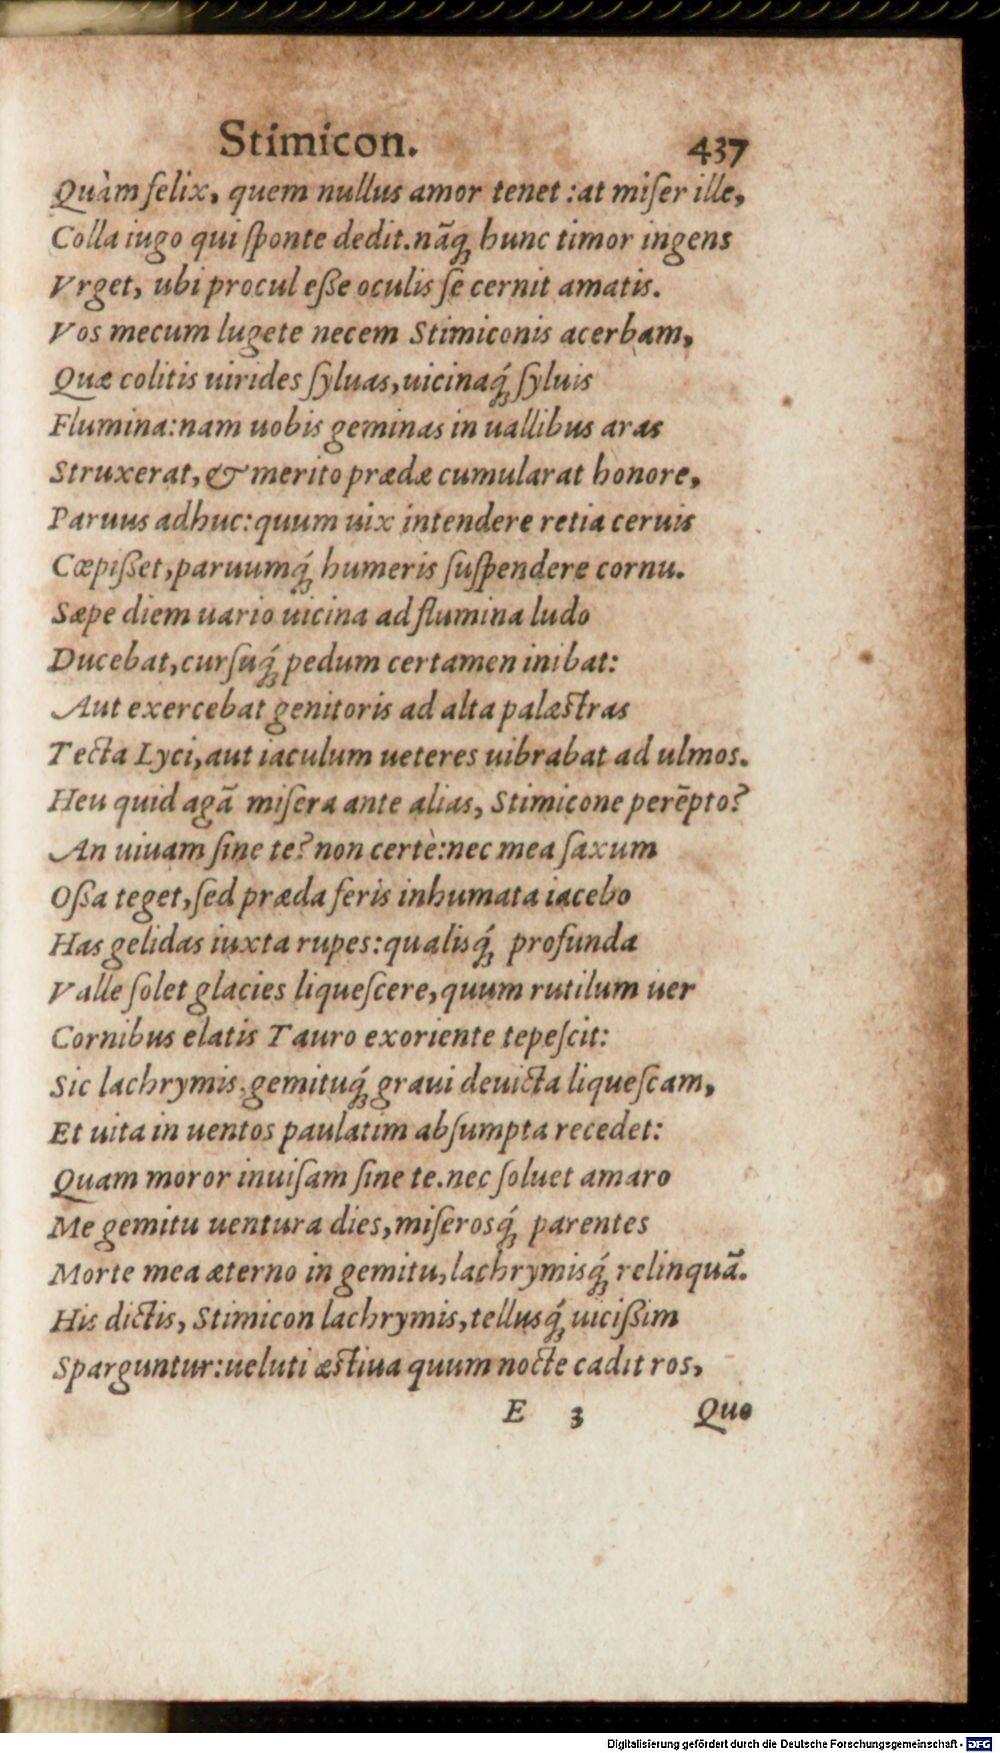 Stimicon. 437
Quàm felix, quem nullus amor tenet: at miſer ille,
Colla iugo qui ſponte dedit. nãq́ꝫ hunc timor ingens
Vrget, ubi procul eſſe oculis ſe cernit amatis.
Vos mecum lugete necem Stimiconis acerbam,
Quæ colitis uirides ſyluas, uicinaq́ꝫ ſyluis
Flumina: nam uobis geminas in uallibus aras
Struxerat, & merito prædæ cumularat honore,
Paruus adhuc: quum uix intendere retia ceruis
Cœpiſſet, paruumq́ꝫ humeris ſuſpendere cornu.
Sæpe diem uario uicina ad flumina ludo
Ducebat, curſuq́ꝫ pedum certamen inibat:
Aut exercebat genitoris ad alta palæſtras
Tecta Lyci, aut iaculum ueteres uibrabat ad ulmos.
Heu quid agã miſera ante alias, Stimicone perẽpto?
An uiuam ſine te? non certè: nec mea ſaxum
Oſſa teget, ſed præda feris inhumata iacebo
Has gelidas iuxta rupes: qualisq́ꝫ profunda
Valle ſolet glacies liqueſcere, quum rutilum uer
Cornibus elatis Tauro exoriente tepeſcit:
Sic lachrymis, gemituq́ꝫ graui deuicta liqueſcam,
Et uita in uentos paulatim abſumpta recedet:
Quam moror inuiſam ſine te. nec ſoluet amaro
Me gemitu uentura dies, miſerosq́ꝫ parentes
Morte mea æterno in gemitu, lachrymisq́ꝫ relinquã.
His dictis, Stimicon lachrymis, tellusq́ꝫ uiciſſim
Sparguntur: ueluti æſtiua quum nocte cadit ros,
E 3 Quo
Digitalisierung gefördert durch die Deutsche Forschungsgemeinschaft - DFG